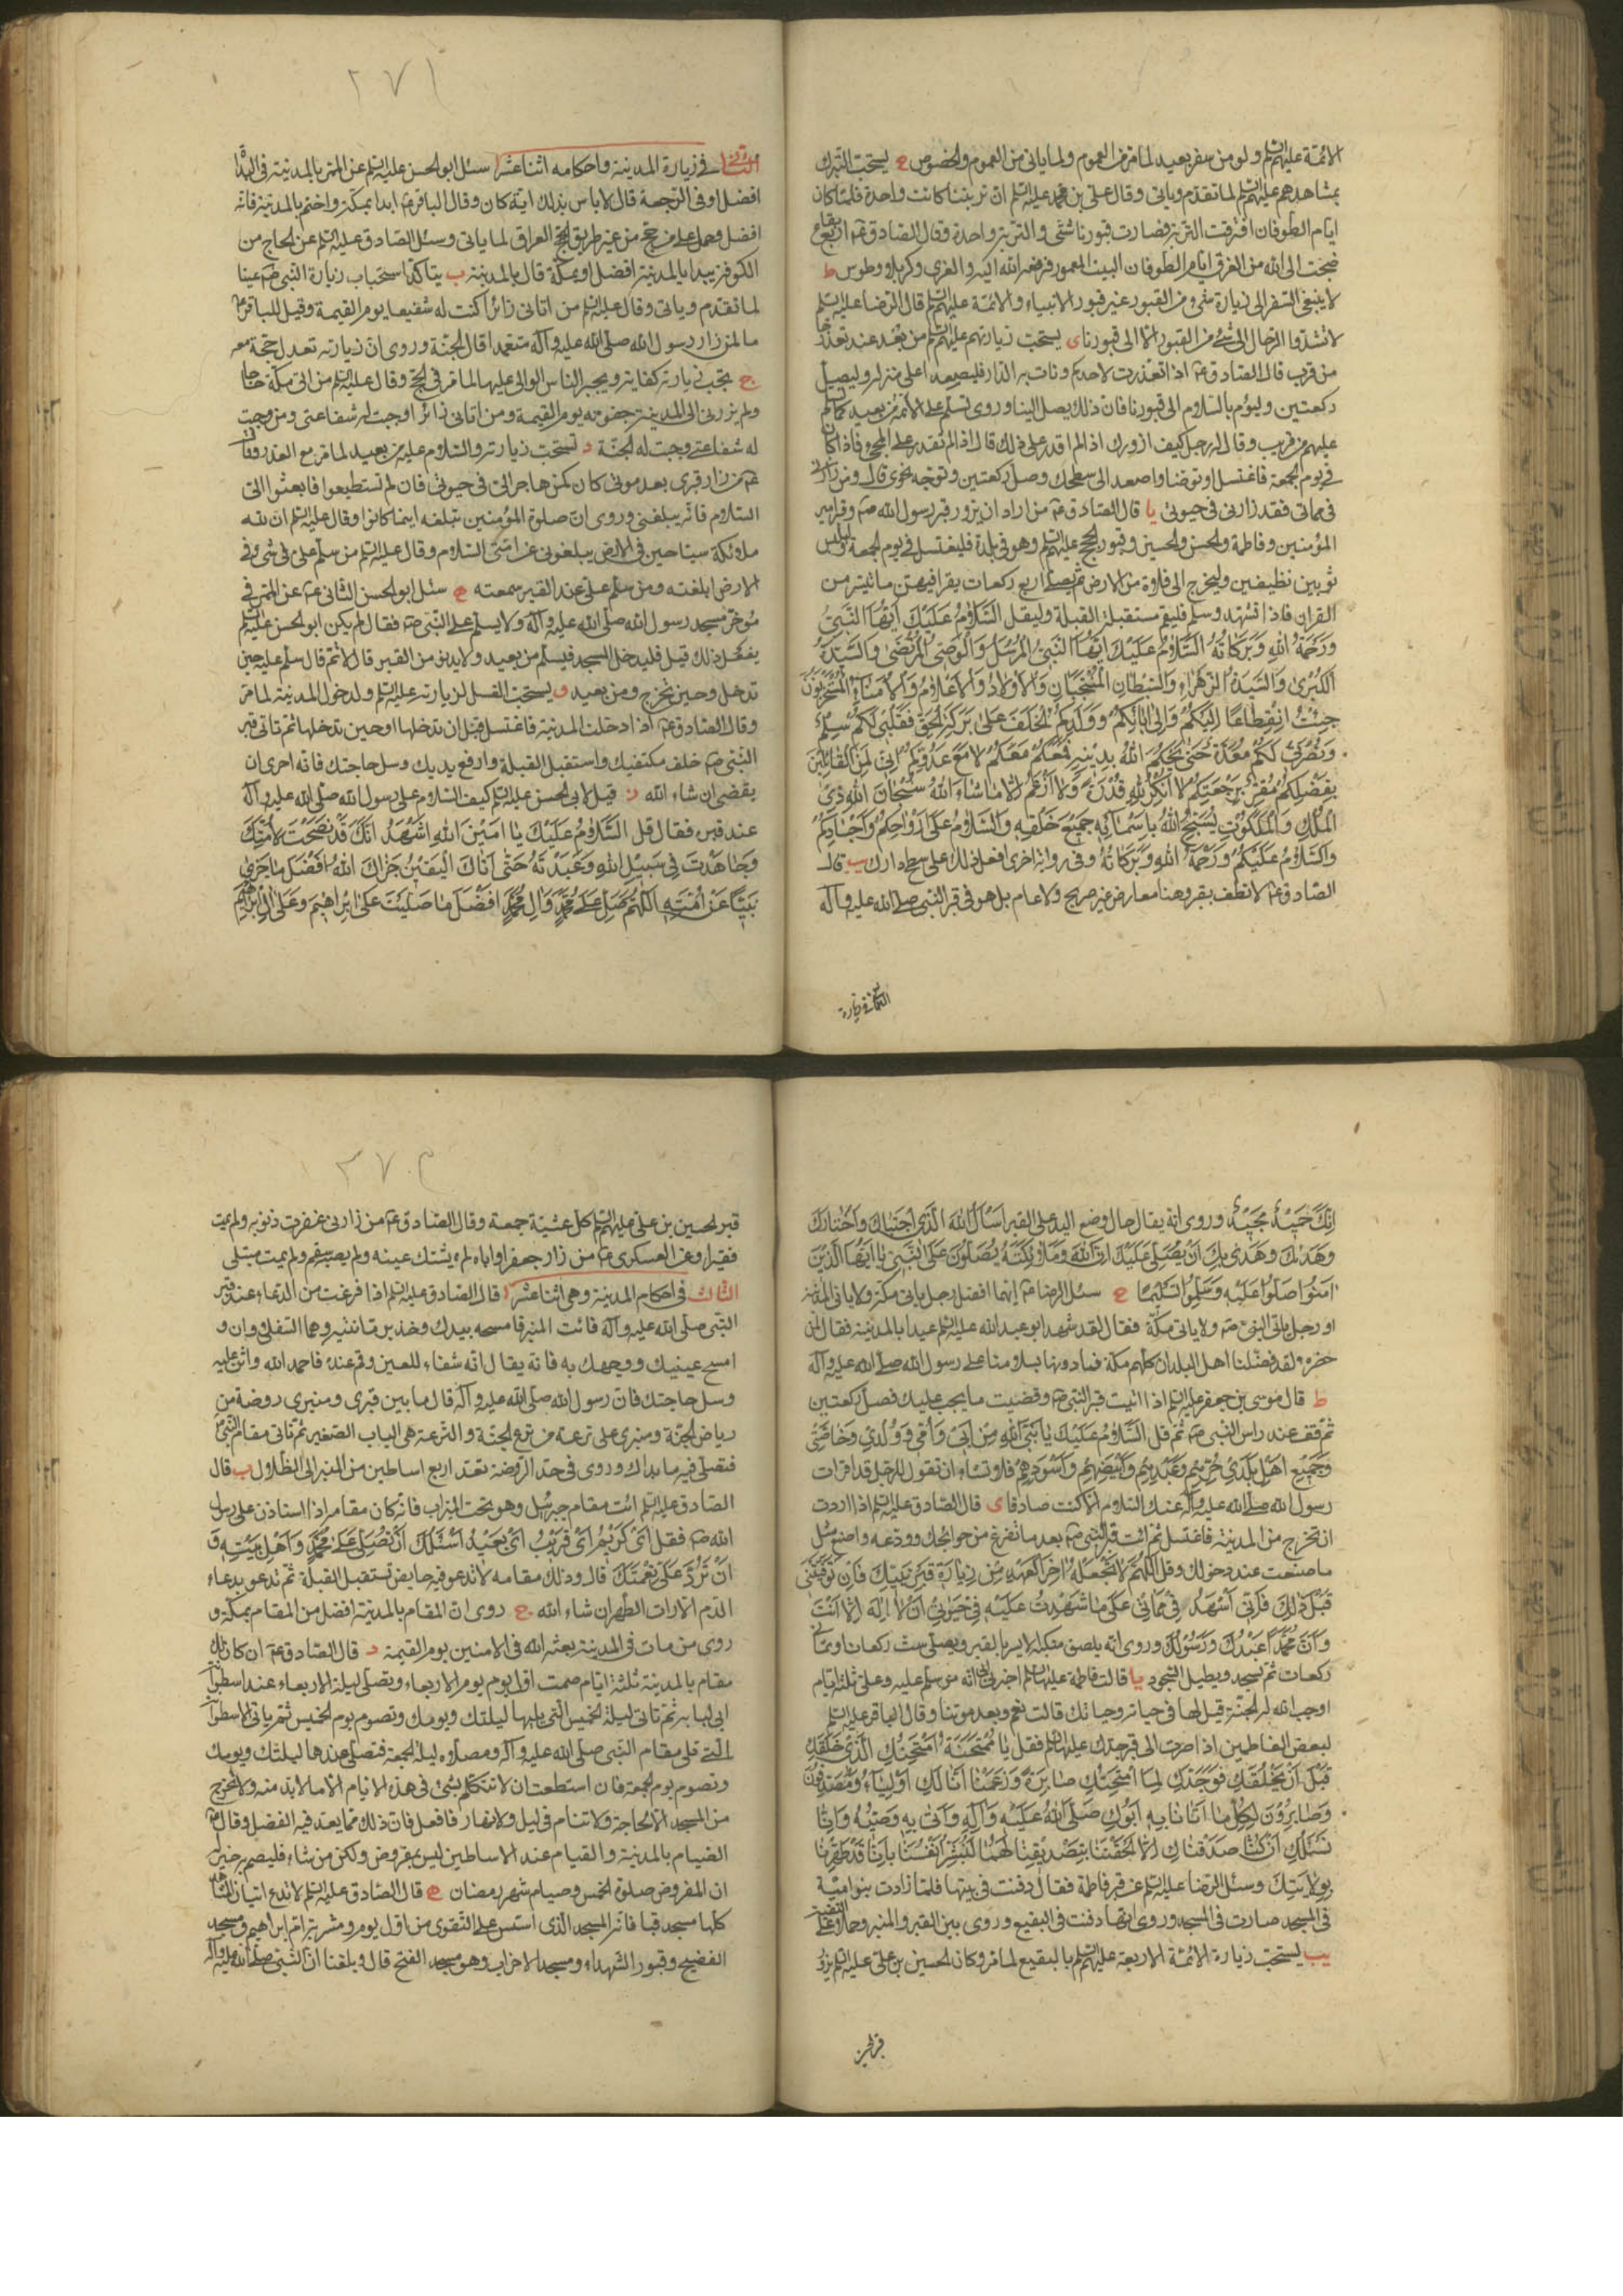 الائمة عليهم السلم ولو من سفر بعيد لما مر من العموم ولما ياتى من العموم والخصوص ح يستحب التبرك
بمشاهدهم عليهم السلم لما تقدم وياتى وقال على بن محمد عليه السلم ان تربتنا كانت واحدة فلما كان
ايام الطوفان افترقت التربة فصارت قبورنا شتى والتربة واحدة وقال الصادق ع اربع بقاع
ضجت الى الله من الغرق ايام الطوفان البيت المعمور فرفعه الله اليه والغرى وكربلا وطوس ط
لا ينبغى السفر الى زيارة شىء من القبور غير قبور الانبياء والائمة عليهم السلم قال الرضا عليه السلم
لا تشدوا الرحال الى شىء من القبور الا الى قبورنا ى يستحب زيارتهم عليهم السلم من بعد عند تعذرها
من قرب قال الصادق ع اذا تعذرت لاحدكم ونات به الدار فليصعد اعلى منزله وليصل
ركعتين وليؤم بالسلام الى قبورنا فان ذلك يصل الينا وروى تسلم على الائمة من بعيد كما تسلم
عليهم من قريب وقال له رجل كيف ازورك اذا لم اقدر على ذلك قال اذا لم تقدر على المجىء فاذا كان
فى يوم الجمعة فاغتسل او توضا واصعد الى سطحك وصل ركعتين وتوجه نحوى قال ومن زارنى
فى مماتى فقد زارنى فى حيوتى يا قال الصادق ع من اراد ان يزور قبر رسول الله ص وقبر امير
المؤمنين وفاطمة والحسن والحسين وقبور الحجج عليهم السلم وهو فى بلدة فليغتسل فى يوم الجمعة وليلبس
ثوبين نظيفين وليخرج الى فلاة من الارض ثم يصلى اربع ركعات يقرا فيهن ما تيسر من
القران فاذا تشهد وسلم فليقم مستقبل القبلة وليقل السَّلَامُ عَلَيْكَ اَيُّهَا النَّبِيُّ
وَرَحْمَةُ اللهِ وَبَرَكَاتُهُ السَّلَامُ عَلَيْكَ اَيُّهَا النَّبِيُّ الْمُرْسَلُ وَالْوَصِيُّ الْمُرْتَضَى وَالسَّيِّدَةُ
الْكُبْرَى وَالسَّيِّدَةُ الزَّهْرَاءُ وَالسِّبْطَانِ الْمُنْتَجَبَانِ وَالْاَوْلَادُ وَالْاَعْلَامُ وَالْاُمَنَاءُ الْمُنْتَجَبُونَ
جِئْتُ انْقِطَاعًا اِلَيْكُمْ وَاِلَى اٰبَائِكُمْ وَوَلَدِكُمُ الْخَلَفِ عَلَى بَرَكَةِ الْحَقِّ فَقَلْبِى لَكُمْ سِلْمٌ
وَنُصْرَتِى لَكُمْ مُعَدَّةٌ حَتَّى يَحْكُمَ اللهُ بِدِيْنِهِ فَمَعَكُمْ مَعَكُمْ لَا مَعَ عَدُوِّكُمْ اِنِّى لَمِنَ الْقَائِلِيْنَ
بِفَضْلِكُمْ مُقِرٌّ بِرَجْعَتِكُمْ لَا اُنْكِرُ لِلّٰهِ قُدْرَةً وَلَا اَزْعُمُ اِلَّا مَا شَاءَ اللهُ سُبْحَانَ اللهِ ذِى
الْمُلْكِ وَالْمَلَكُوتِ يُسَبِّحُ اللهَ بِاَسْمَائِهِ جَمِيْعُ خَلْقِهِ وَالسَّلَامُ عَلَى اَرْوَاحِكُمْ وَاَجْسَادِكُمْ
وَالسَّلَامُ عَلَيْكُمْ وَرَحْمَةُ اللهِ وَبَرَكَاتُهُ وفى رواية اخرى افعل ذلك على سطح دارك يب قال
الصادق ع لا تطف بقبر وهنا معارض غير صريح ولا عام بل هو فى قبر النبى صلى الله عليه وآله
الثانى فى زيارة
٢٧١
الثانى فى زيارة المدينة واحكامه اثنا عشر ا سئل ابو الحسن عليه السلم عن الممر بالمدينة فى البداة
افضل او فى الرجعة قال لا باس بذلك اية كان وقال الباقر ع ابدا بمكة واختم بالمدينة فانه
افضل وحمل على من حج من غير طريق العراق لما ياتى وسئل الصادق عليه السلم عن الحاج من
الكوفة يبدا بالمدينة افضل او بمكة قال بالمدينة ب يتاكد استحباب زيارة النبى ص عينا
لما تقدم وياتى وقال عليه السلم من اتانى زائرا كنت له شفيعا يوم القيمة وقيل للباقر ع
ما لمن زار رسول الله صلى الله عليه وآله متعمدا قال الجنة وروى ان زيارته تعدل حجة معه
ج تجب زيارته كفاية ويجبر الناس الوالى عليها لما مر فى الحج وقال عليه السلم من اتى مكة حاجا
ولم يزرنى الى المدينة جفوته يوم القيمة ومن اتانى زائرا وجبت له شفاعتى ومن وجبت
له شفاعتى وجبت له الجنة د تستحب زيارته والسلام عليه من بعيد لما مر مع العذر وقال
ع من زار قبرى بعد موتى كان كمن هاجر الى فى حيوتى فان لم تستطيعوا فابعثوا الى
السلام فانه يبلغنى وروى ان صلوة المؤمنين تبلغه اينما كانوا وقال عليه السلم ان لله
ملائكة سياحين فى الارض يبلغونى عن امتى السلام وقال عليه السلم من سلم على فى شىء من
الارض ابلغته ومن سلم على عند القبر سمعته ه سئل ابو الحسن الثانى ع عن الممر فى
مؤخر مسجد رسول الله صلى الله عليه وآله ولا يسلم على النبى ص فقال لم يكن ابو الحسن عليه السلم
يفعل ذلك قيل فليدخل المسجد فيسلم من بعيد ولا يدنو من القبر قال لا ثم قال سلم عليه حين
تدخل وحين تخرج ومن بعيد و يستحب الغسل لزيارته عليه السلم ولدخول المدينة لما مر
وقال الصادق ع اذا دخلت المدينة فاغتسل قبل ان تدخلها او حين تدخلها ثم تاتى قبر
النبى ص خلف مكتفيك واستقبل القبلة وارفع يديك وسل حاجتك فانه احرى ان
يقضى ان شاء الله ز قيل لابى الحسن عليه السلم كيف السلام على رسول الله صلى الله عليه وآله
عند قبره فقال قل السَّلَامُ عَلَيْكَ يَا اَمِيْنَ اللهِ اَشْهَدُ اَنَّكَ قَدْ نَصَحْتَ لِاُمَّتِكَ
وَجَاهَدْتَ فِى سَبِيْلِ اللهِ وَعَبَدْتَهُ حَتَّى اَتَاكَ الْيَقِيْنُ جَزَاكَ اللهُ اَفْضَلَ مَا جَزَى
نَبِيًّا عَنْ اُمَّتِهِ اَللّٰهُمَّ صَلِّ عَلَى مُحَمَّدٍ وَاٰلِ مُحَمَّدٍ اَفْضَلَ مَا صَلَّيْتَ عَلَى اِبْرَاهِيْمَ وَعَلَى اٰلِ اِبْرَاهِيْمَ
اِنَّكَ حَمِيْدٌ مَجِيْدٌ وروى انه يقال حال وضع اليد على القبر اَسْاَلُ اللهَ الَّذِى اجْتَبَاكَ وَاخْتَارَكَ
وَهَدَاكَ وَهَدَى بِكَ اَنْ يُصَلِّىَ عَلَيْكَ اِنَّ اللهَ وَمَلَائِكَتَهُ يُصَلُّوْنَ عَلَى النَّبِىِّ يَا اَيُّهَا الَّذِيْنَ
اٰمَنُوا صَلُّوا عَلَيْهِ وَسَلِّمُوا تَسْلِيْمًا ح سئل الرضا ع ايهما افضل رجل ياتى مكة ولا ياتى المدينة
او رجل ياتى النبى ص ولا ياتى مكة فقال لقد شهد ابو عبد الله عليه السلم عيدا بالمدينة فقال لمن
حضره ولقد فضلنا اهل البلدان كلهم مكة فما دونها بسلامنا على رسول الله صلى الله عليه وآله
ط قال موسى بن جعفر عليه السلم اذا اتيت قبر النبى ص وقضيت ما يجب عليك فصل ركعتين
ثم قف عند راس النبى ص ثم قل السَّلَامُ عَلَيْكَ يَا نَبِيَّ اللهِ مِنْ اَبِى وَاُمِّى وَوُلْدِى وَخَاصَّتِى
وَجَمِيْعِ اَهْلِ بَلَدِى حُرِّهِمْ وَعَبْدِهِمْ وَاَبْيَضِهِمْ وَاَسْوَدِهِمْ فلا تشاء ان تقول للرجل قد اقرات
رسول الله صلى الله عليه وآله عنك السلام الا كنت صادقا ى قال الصادق عليه السلم اذا اردت
ان تخرج من المدينة فاغتسل ثم ائت قبر النبى ص بعد ما تفرغ من حوائجك وودعه واصنع مثل
ما صنعت عند دخولك وقل اَللّٰهُمَّ لَا تَجْعَلْهُ اٰخِرَ الْعَهْدِ مِنْ زِيَارَةِ قَبْرِ نَبِيِّكَ فَاِنْ تَوَفَّيْتَنِى
قَبْلَ ذٰلِكَ فَاِنِّى اَشْهَدُ فِى مَمَاتِى عَلَى مَا شَهِدْتُ عَلَيْهِ فِى حَيٰوتِى اَنْ لَا اِلٰهَ اِلَّا اَنْتَ
وَاَنَّ مُحَمَّدًا عَبْدُكَ وَرَسُوْلُكَ وروى انه يلصق منكبه الايسر بالقبر ويصلى ست ركعات او ثمانى
ركعات ثم يسجد ويطيل السجود يا قالت فاطمة عليها السلم اخبرنى ابى انه من سلم عليه وعلى ثلثة ايام
اوجب الله له الجنة قيل لها فى حياته وحياتك قالت نعم وبعد موتنا وقال الباقر عليه السلم
لبعض الفاطمين اذا صرت الى قبر جدتك عليها السلم فقل يَا مُمْتَحَنَةُ امْتَحَنَكِ الَّذِى خَلَقَكِ
قَبْلَ اَنْ يَخْلُقَكِ فَوَجَدَكِ لِمَا امْتَحَنَكِ صَابِرَةً وَزَعَمْنَا اَنَّا لَكِ اَوْلِيَاءُ وَمُصَدِّقُوْنَ
وَصَابِرُوْنَ لِكُلِّ مَا اَتَانَا بِهِ اَبُوْكِ صَلَّى اللهُ عَلَيْهِ وَاٰلِهِ وَاَتَى بِهِ وَصِيُّهُ وَاِنَّا
نَسْئَلُكِ اِنْ كُنَّا صَدَّقْنَاكِ اِلَّا اَلْحَقْتِنَا بِتَصْدِيْقِنَا لَهُمَا لِنُبَشِّرَ اَنْفُسَنَا بِاَنَّا قَدْ طَهُرْنَا
بِوِلَايَتِكِ وسئل الرضا عليه السلم عن قبر فاطمة فقال دفنت فى بيتها فلما زادت بنو امية
فى المسجد صارت فى المسجد وروى انها دفنت فى البقيع وروى بين القبر والمنبر وحملا على التقية
يب يستحب زيارة الائمة الاربعة عليهم السلم بالبقيع لما مر وكان الحسين بن على عليه السلم يزور
قبر الحسين
٢٧٢
قبر الحسين بن على عليهم السلم كل عشية جمعة وقال الصادق ع من زارنى غفرت ذنوبه ولم يمت
فقيرا وعن العسكرى ع من زار جعفرا واباه لم يشتك عينه ولم يصبه سقم ولم يمت مبتلى
الثالث فى احكام المدينة وهى اثنا عشر ا قال الصادق عليه السلم اذا فرغت من الدعاء عند قبر
النبى صلى الله عليه وآله فائت المنبر فامسحه بيدك وخذ برمانتيه وهما السفلاوان و
امسح عينيك ووجهك به فانه يقال انه شفاء للعين وقم عنده فاحمد الله واثن عليه
وسل حاجتك فان رسول الله صلى الله عليه وآله قال ما بين قبرى ومنبرى روضة من
رياض الجنة ومنبرى على ترعة من ترع الجنة والترعة هى الباب الصغير ثم تاتى مقام النبى ص
فتصلى فيه ما بدا لك وروى فى حد الروضة بعد اربع اساطين من المنبر الى الظلال ب قال
الصادق عليه السلم ائت مقام جبرئيل وهو تحت الميزاب فانه كان مقامه اذا استاذن على رسول
الله ص فقل اَىْ كَرِيْمُ اَىْ قَرِيْبُ اَىْ بَعِيْدُ اَسْئَلُكَ اَنْ تُصَلِّىَ عَلَى مُحَمَّدٍ وَاَهْلِ بَيْتِهِ وَ
اَنْ تَرُدَّ عَلَىَّ نِعْمَتَكَ قال وذلك مقامه لا تدعو فيه حايض تستقبل القبلة ثم تدعو بدعاء
الدم الا رات الطهر ان شاء الله ج روى ان المقام بالمدينة افضل من المقام بمكة و
روى من مات فى المدينة بعثه الله فى الامنين يوم القيمة د قال الصادق ع ان كان لك
مقام بالمدينة ثلثة ايام صمت اول يوم يوم الاربعاء وتصلى ليلة الاربعاء عند اسطوانة
ابى لبابة ثم تاتى ليلة الخميس التى يليها ليلتك ويومك وتصوم يوم الخميس ثم تاتى الاسطوانة
التى تلى مقام النبى صلى الله عليه وآله ومصلاه ليلة الجمعة فتصلى عندها ليلتك ويومك
وتصوم يوم الجمعة فان استطعت ان لا تتكلم بشىء فى هذه الايام الا ما لا بد منه ولا تخرج
من المسجد الا لحاجة ولا تنام فى ليل ولا نهار فافعل فان ذلك مما يعد فيه الفضل وقال ع
الصيام بالمدينة والقيام عند الاساطين ليس بمفروض ولكن من شاء فليصم فهو خير له
ان المفروض صلوة الخمس وصيام شهر رمضان ه قال الصادق عليه السلم لا تدع اتيان المشاهد
كلها مسجد قبا فانه المسجد الذى اسس على التقوى من اول يوم ومشربة ام ابراهيم ومسجد
الفضيخ وقبور الشهداء ومسجد الاحزاب وهو مسجد الفتح قال وبلغنا ان النبى صلى الله عليه وآله